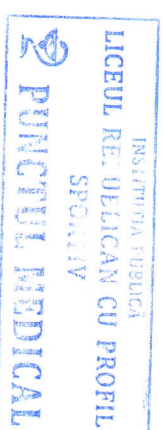 INSTITUȚIA PUBLICĂ
LICEUL REPUBLICAN CU PROFIL
SPORTIV
PUNCTUL MEDICAL